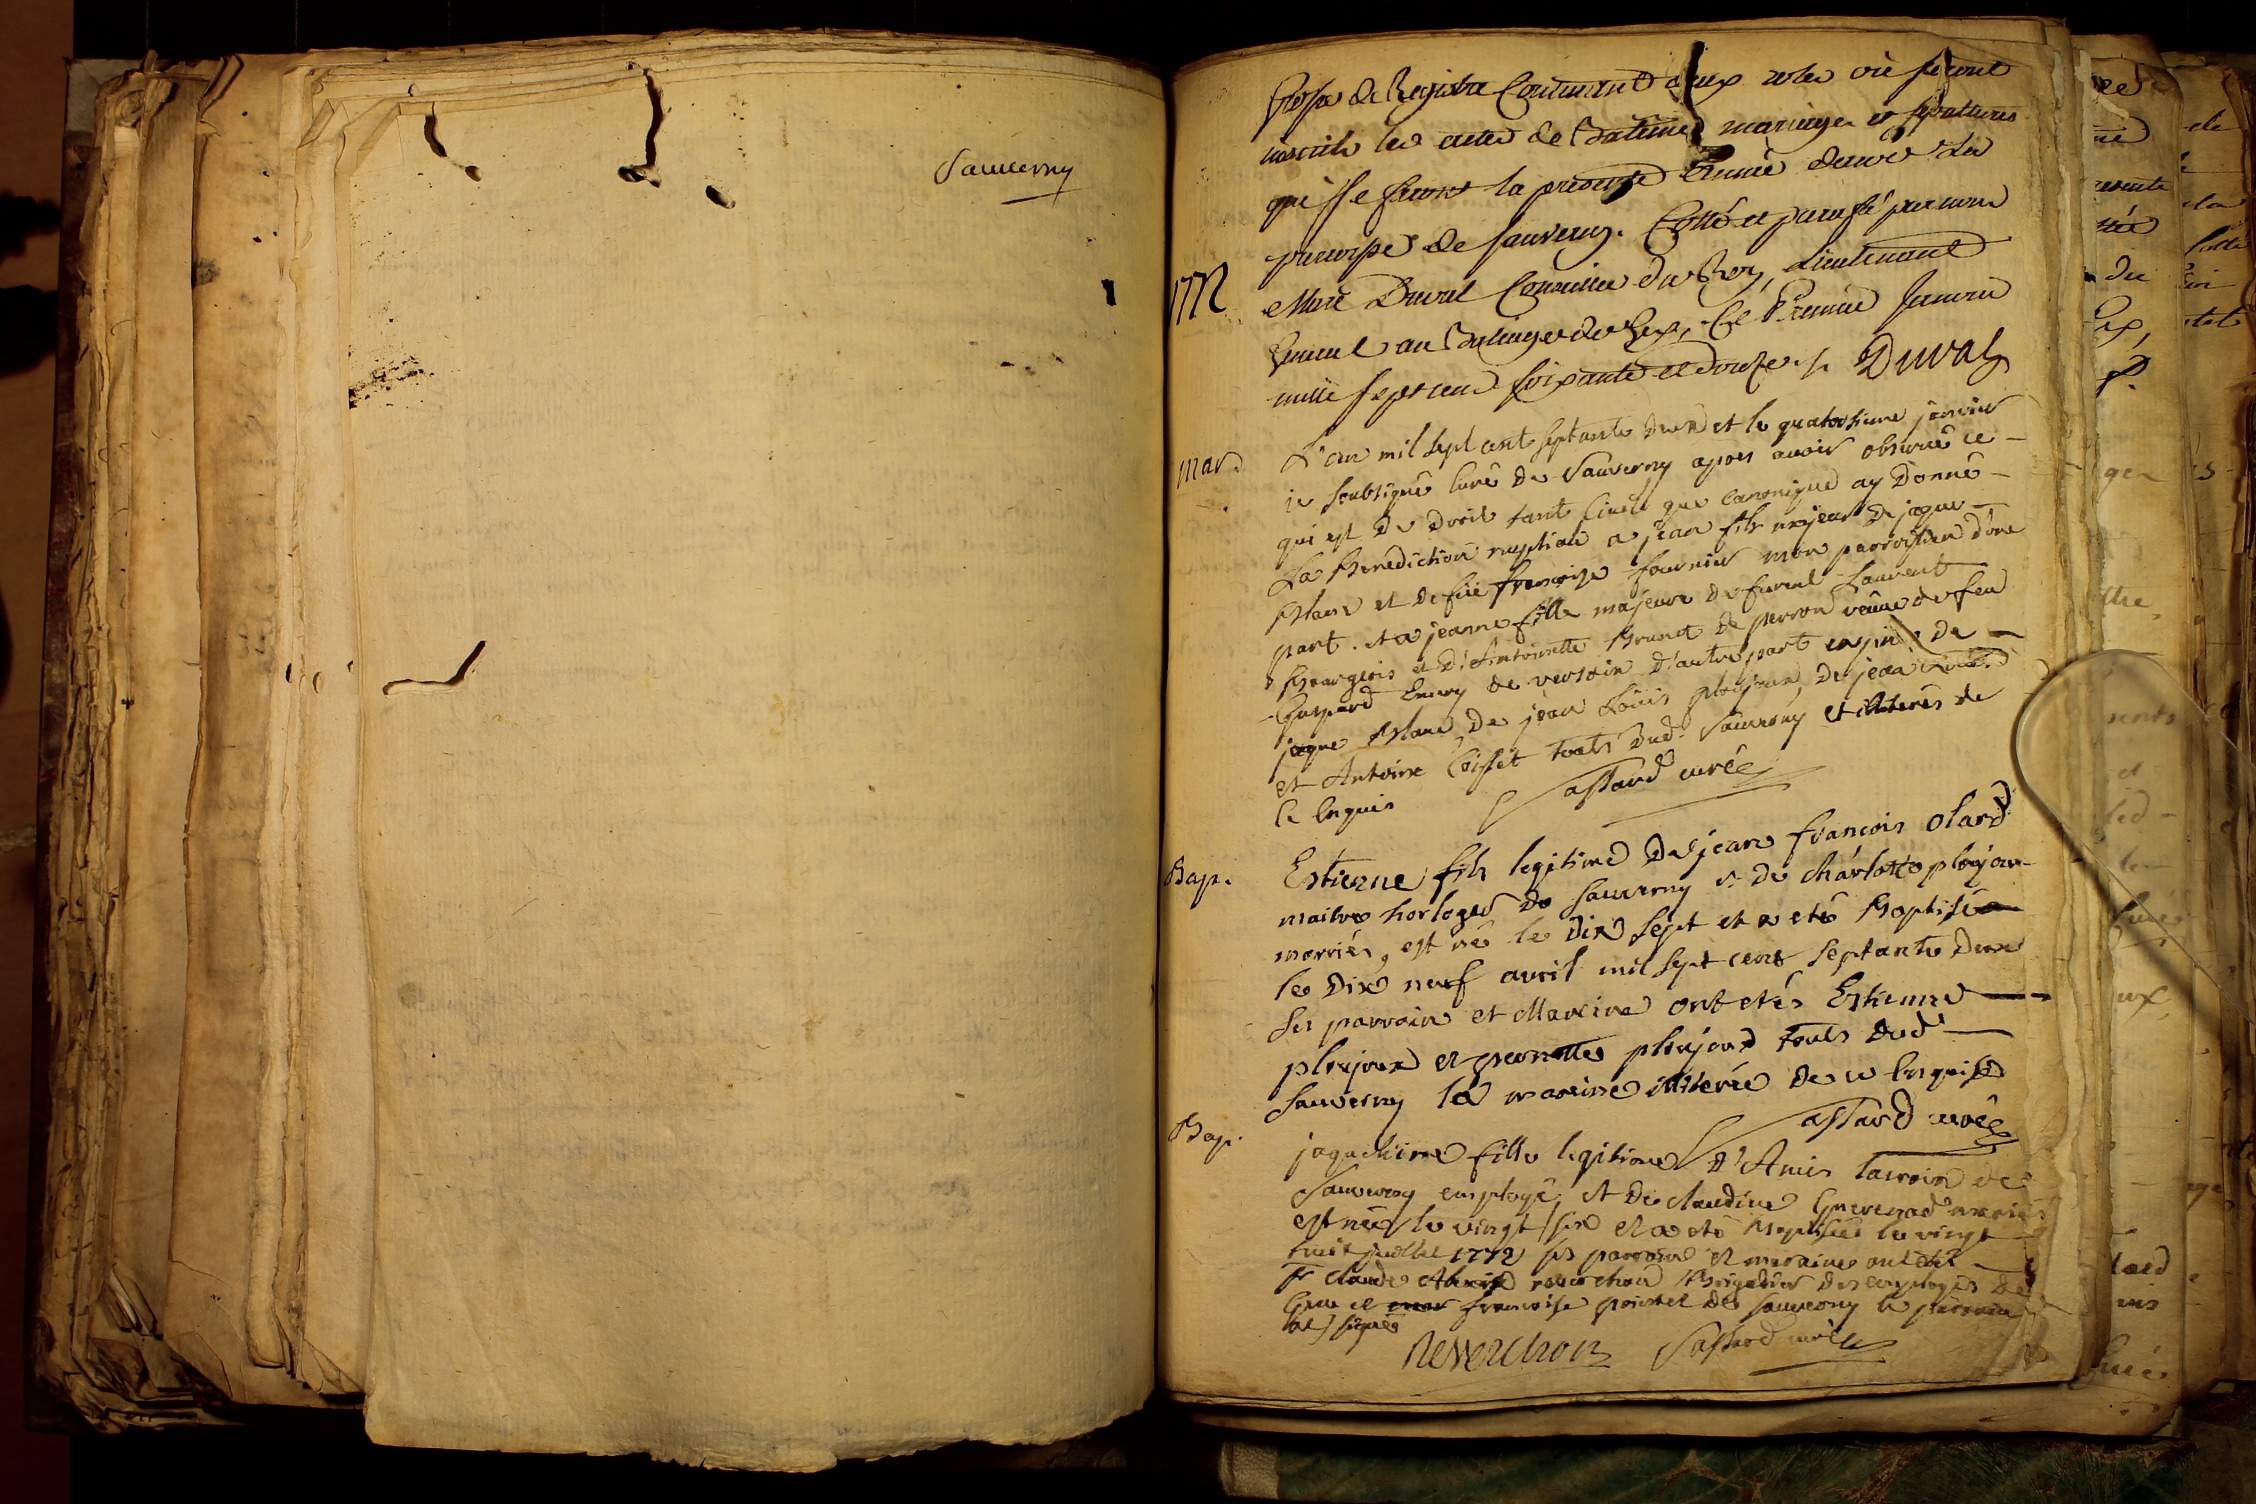 Sauverny
Grosse de Registre Contenant deux roles où seront
inscrits les actes de Batême mariages et sepultures
qui se feront la presente Année dans la
paroisse de Sauverny. Cotté et paraffé par nous
Marc Duval Conseiller du Roy, Lieutenant
1772
General au Bailliage de Gex, Ce Premier Janvier
mille sept cent soixante et douze ./. Duval
mar.
L'an mil sept cent septante deux et le quatorzieme janvier
je soubsigné Curé de Sauverny apres avoir observé ce
qui est de droit tant Civil que Canonique ay donné
La Benediction nuptiale a jean fils majeur de jaque
et de fuë françoise fournier mon paroissien d'une
part. et a jeanne fille majeure de furent Laurent
Bourgeois et d'Antoinette Brunet de perron veuve de feu
Gaspard Emery de versoix d'autre part en presence de
jaque de jean Loüis plojoux, de jean
et Antoine Coisset touts dud. Sauverny et illiterés de
ce Enquis
Sassard curé
Bap.
Estienne fils legitime de jean françois olard
maitre horloger de Sauverny et de charlotte plojoux
marriés, est né le dix sept et a eté Baptisé
le dix neuf avril mil sept cent septante deux
ses parrain et Maraine ont etés Estienne
ploujoux et pernette ploujoux touts dud
Sauverny la maraine illiterée de ce Enquise
Sassard curé
Bap.
jaquemine fille legitime d'Amis lacroix de
Sauverny employé, et de claudine mariés
est née le vingt six et a eté Baptisée le vingt
huit juillet 1772 ses parrain et maraine ont etés
Sr claude reverchon Brigadier des employés de
et françoise pointet de Sauverny le parrain
at signé
Reverchon Sassard curé